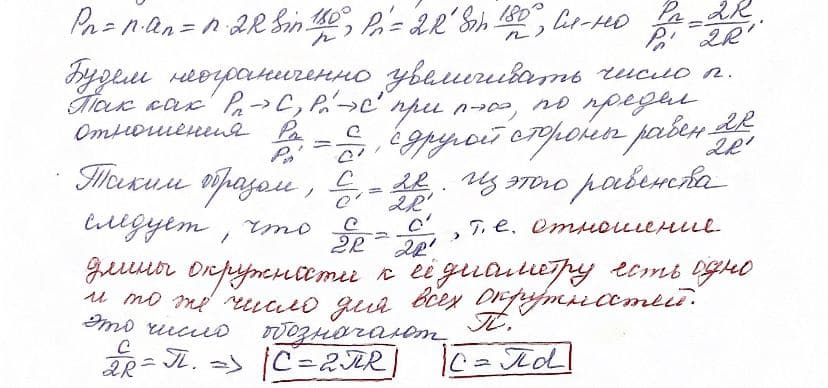 Pn = n·an = n·2R Sin 180°/n, Pn' = 2R' Sin 180°/n, Сл-но Pn/Pn' = 2R/2R'.
Будем неограниченно увеличивать число n.
Так как Pn→C, Pn'→C' при n→∞, то предел
отношения Pn/Pn' = C/C', с другой стороны равен 2R/2R'
Таким образом, C/C' = 2R/2R'. Из этого равенства
следует, что C/2R = C'/2R', т.е. отношение
длины окружности к её диаметру есть одно
и то же число для всех окружностей.
Это число обозначают π.
C/2R = π. => C = 2πR C = πd